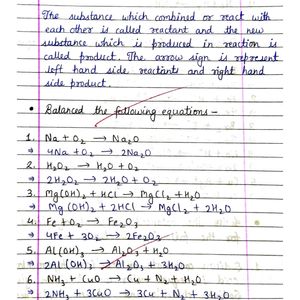 The substance which combined or react with
each other is called reactant and the new
substance which is produced in reaction is
called product. The arrow sign is represent
left hand side reactants and right hand
side product.
• Balanced the following equations –
1. Na + O₂ → Na₂O
⇒ 4Na + O₂ → 2Na₂O
2. H₂O₂ → H₂O + O₂
⇒ 2H₂O₂ → 2H₂O + O₂
3. Mg(OH)₂ + HCl → MgCl₂ + H₂O
⇒ Mg(OH)₂ + 2HCl → MgCl₂ + 2H₂O
4. Fe + O₂ → Fe₂O₃
⇒ 4Fe + 3O₂ → 2Fe₂O₃
5. Al(OH)₃ → Al₂O₃ + H₂O
⇒ 2Al(OH)₃ → Al₂O₃ + 3H₂O
6. NH₃ + CuO → Cu + N₂ + H₂O
⇒ 2NH₃ + 3CuO → 3Cu + N₂ + 3H₂O